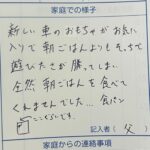 家庭での様子
新しい車のおもちゃがお気に
入りで朝ごはんよりもそっちで
遊びたさが勝ってしまい
全然朝ごはんを食べて
くれませんでした… 食パン
ここくらいです。
記入者（ 父 ）
家庭からの連絡事項